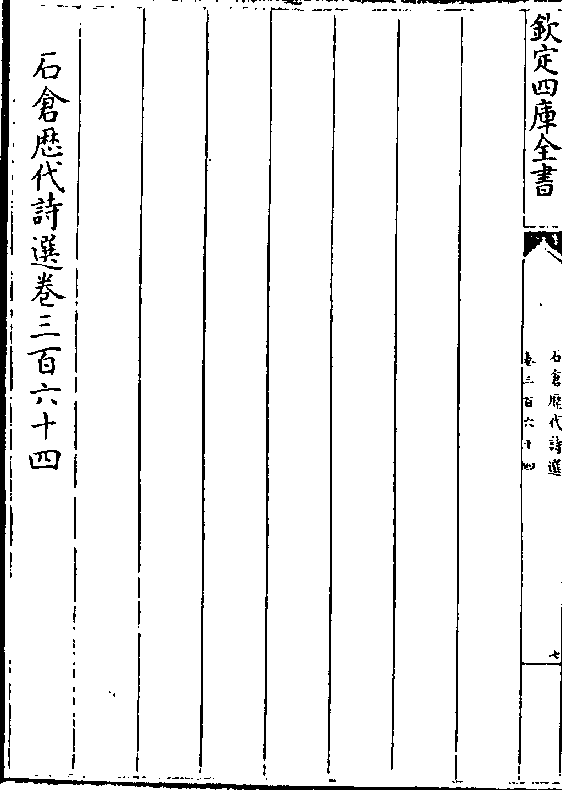 欽定四庫全書
石倉歴代詩選
卷三百六十四
七
石倉歴代詩選卷三百六十四